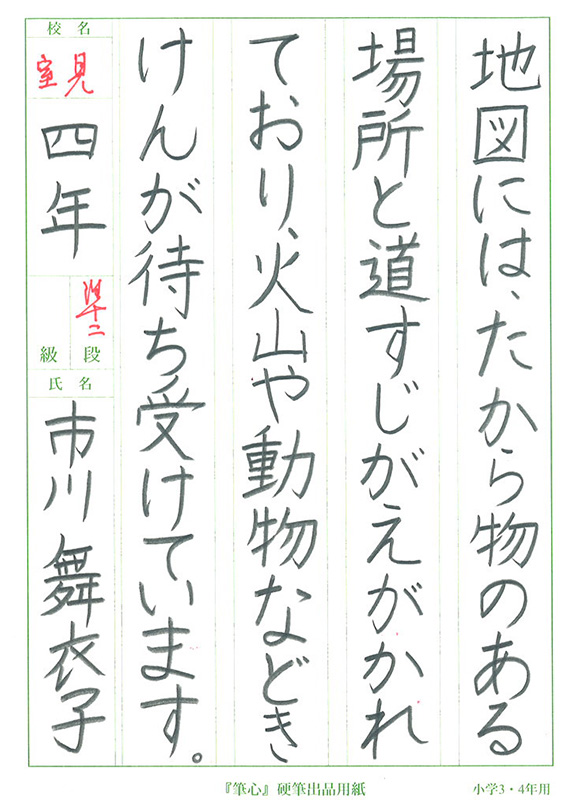 地図には、たから物のある
場所と道すじがえがかれ
ており、火山や動物などき
けんが待ち受けています。
校名
室見
四年
準十二
級 段
氏名
市川 舞衣子
『筆心』硬筆出品用紙
小学3・4年用